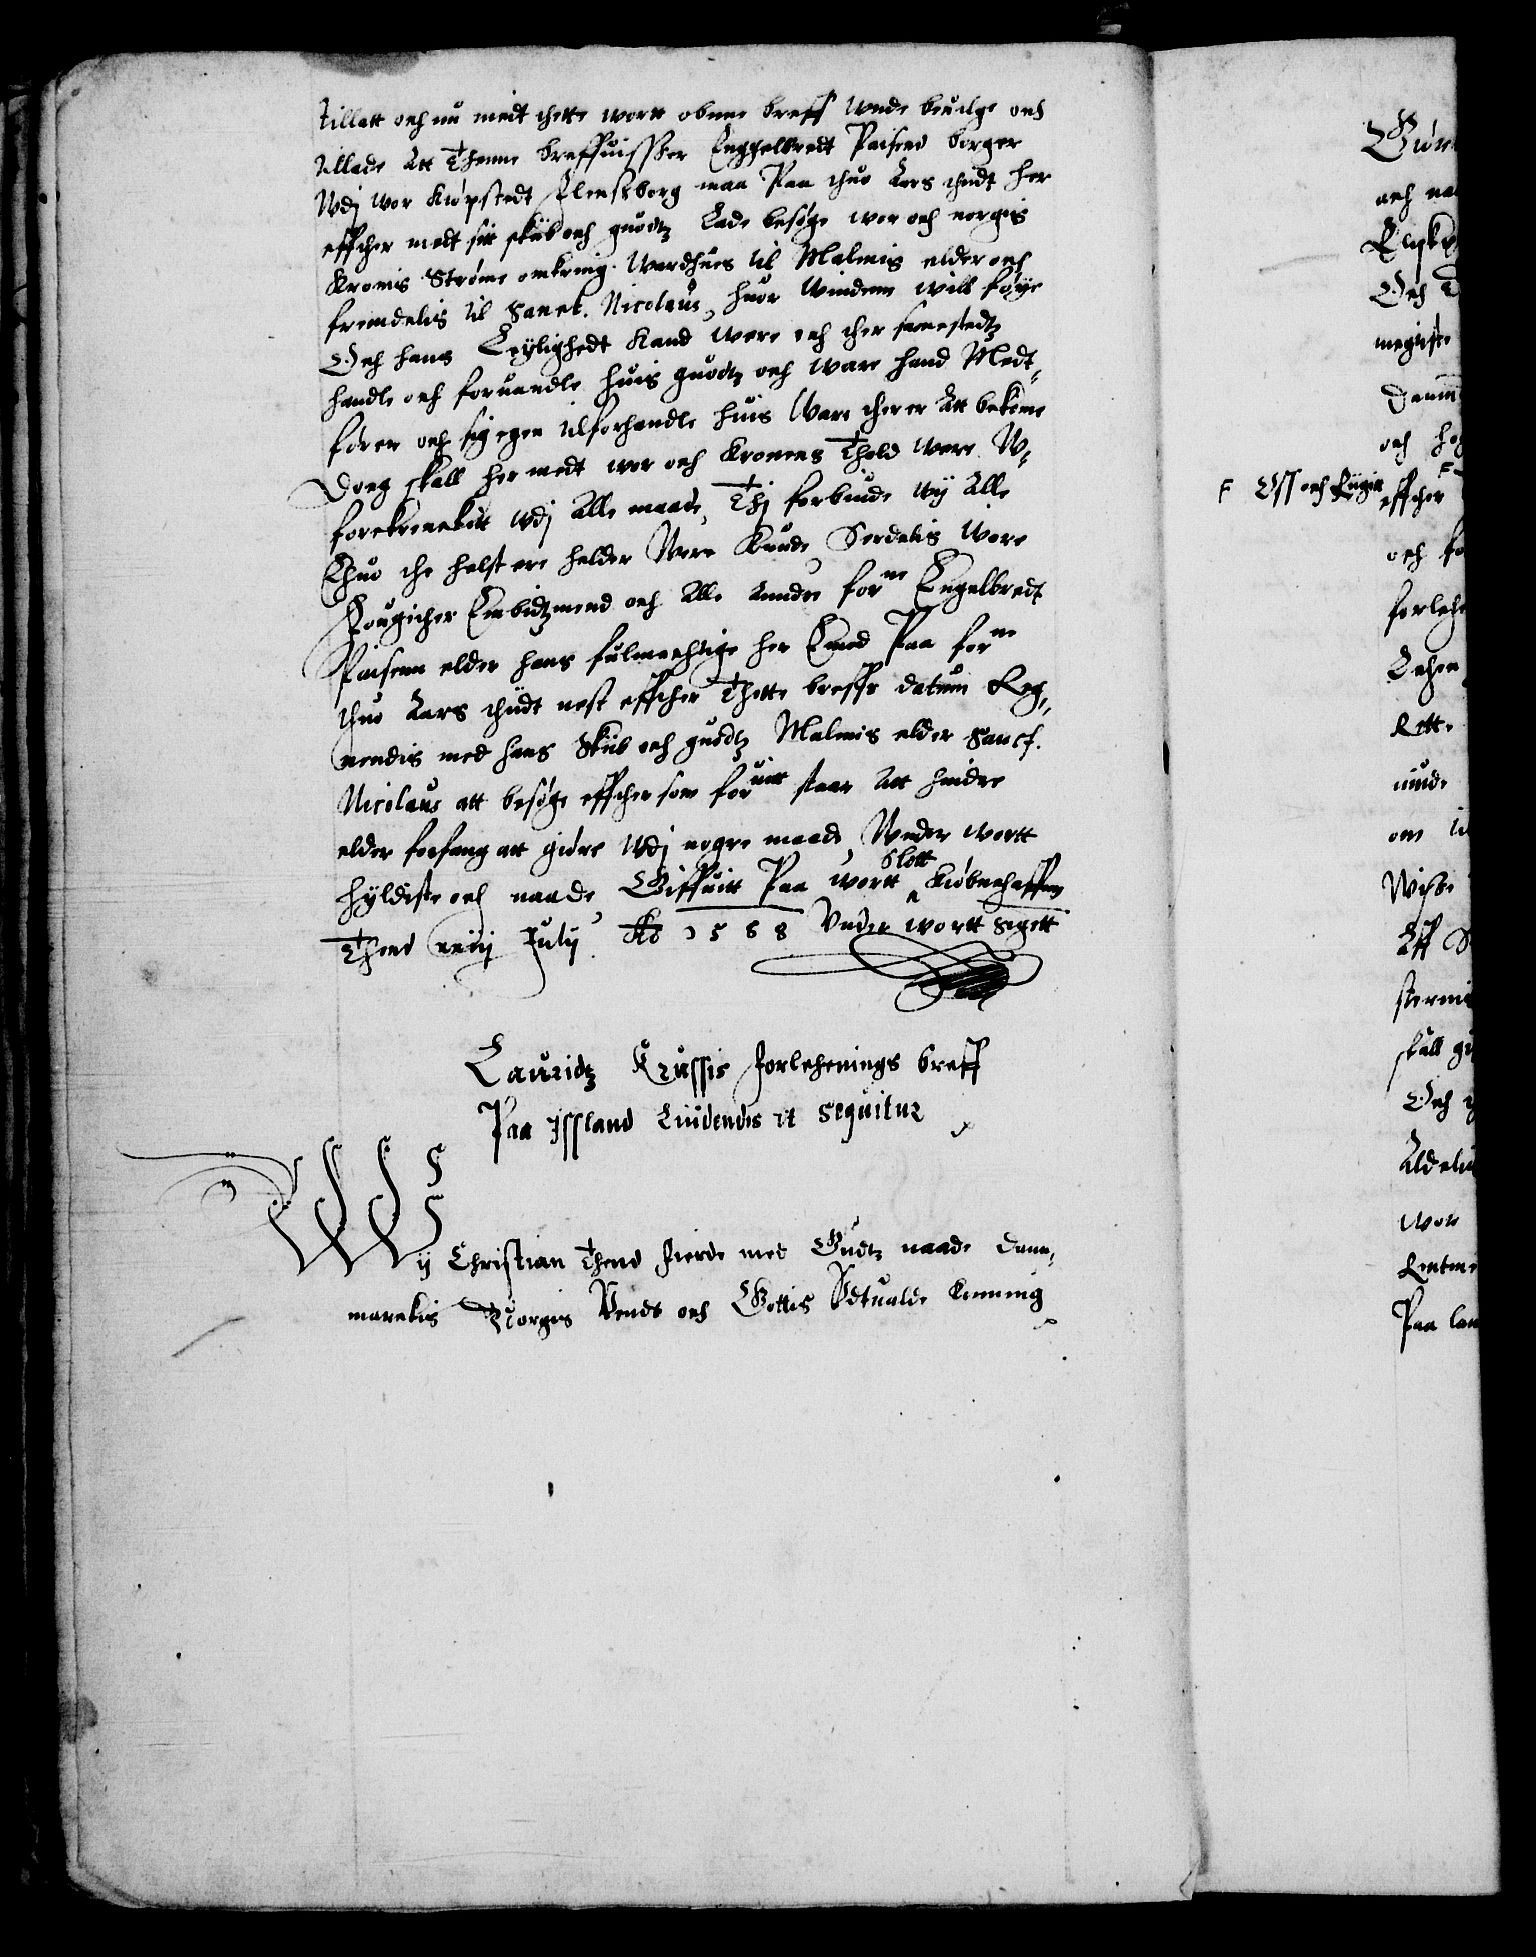 tillatt och nu medt thette wortt obnne breff wnde beuilge och
tillade Att Thenne breffuissher Enggelbredt Paisens borger
Wdj wor Kiøpstedt Flensborg maa Paa thuo Aars thidt her
effther medt sitt skib och guodtz Lade besøge wor och norgis
Kronis Strøme omkring Wardhues til Malmis elder och
fremdelis til Sanct. Nicolaus, huor Windenn will føye
Och hans Leylighedt Kand were och ther samestedtz
handle och foruandle huis guodtz och ware hand Medt-
fører och sig egen tilforhandle huis Ware ther er Att bekome
Dog skall her medt wor och Kronens Thold were W-
forekrenckitt wdj Alle maade, Thj forbiude wij Alle
Ehuo the helst ere helder Were Kunde Serdelis wore
Fougether Embidtzmend och Alle Andre forne Engelbredt
Paisenn elder hans fulmechtige her Emod Paa forne
thuo Aars thidt nest effther Thette breffs datum Reg-
nendis med hans Skib och guodtz Malmis elder Sanct.
Nicolaus att besøge effther som foruitt staar Att hindre
elder forfang att giøre Wdj nogre maade, Wnder wortt
hyldiste och naade Giffuitt Paa wortt Slott Kiøbnehaffnn
Thend xxiij July Ao 1588 Vnder wortt Segett
Lauridtz Krussis forlehnings breff
Paa Issland Liudendis ut sequitur
Wij Christian Thend fierde med Gudtz naade Dann-
marckis Norgis Vendt och Gottis Vdtualde Konning
F Oss och Rigitt
och
effther
Och
Rett
om
Wisse
Aff
skall
Och
wor
Paa